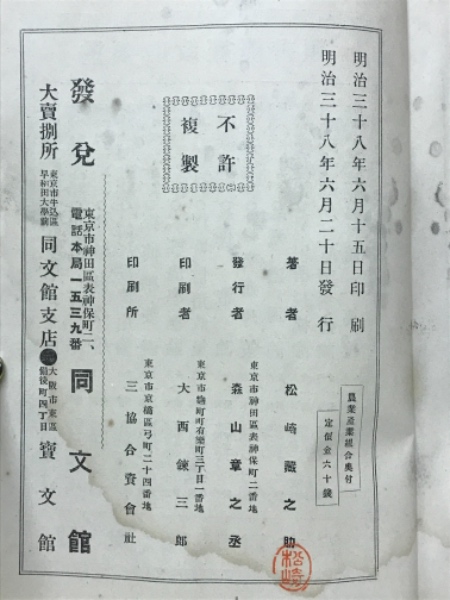 明治三十八年六月十五日印刷
明治三十八年六月二十日發行
農業產業組合奥付
定價金六十錢
不許
複製
著者 松崎藏之助
東京市神田區表神保町二番地
發行者 森山章之丞
東京市麹町町有樂町三丁目一番地
印刷者 大西錬三郎
東京市京橋區弓町二十四番地
印刷所 三協合資會社
東京市神田區表神保町二、
電話本局一五三九番
發兌 同文館
大賣捌所
東京市牛込區
早稻田大學前
同文館支店
大阪市東區
備後町四丁目
寶文館
松崎